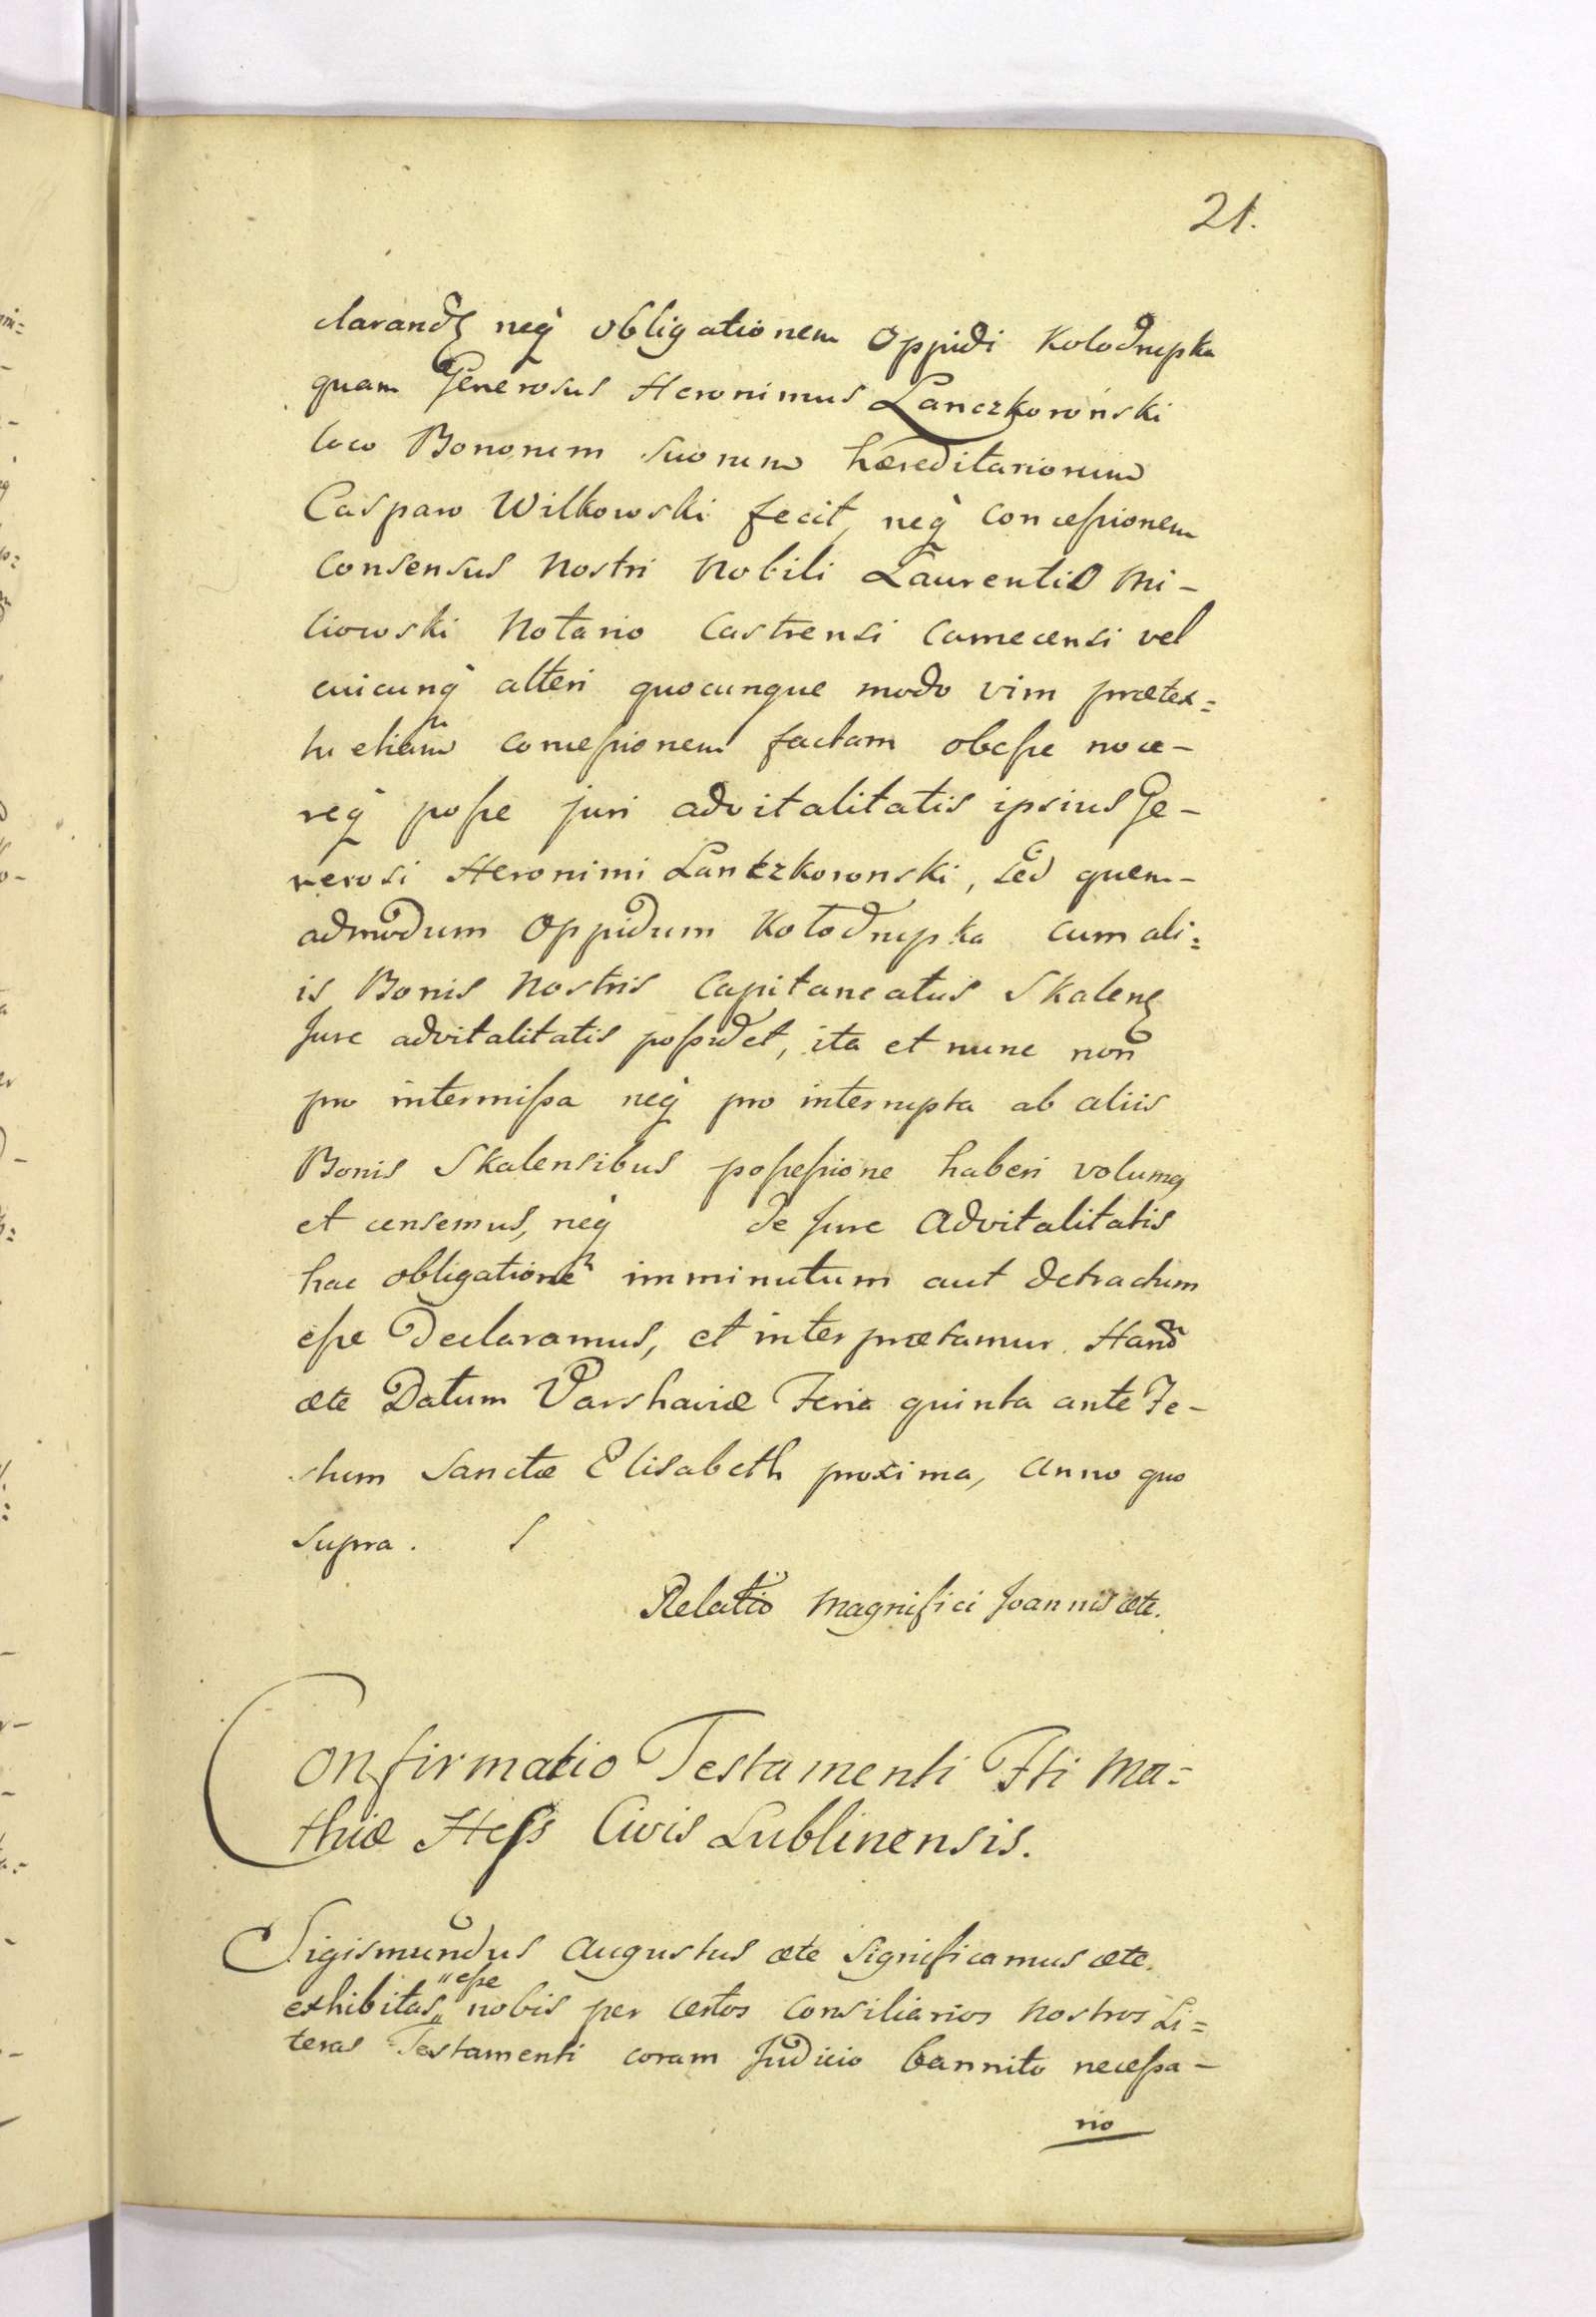 21.
clarandę neq̀ obligationem Oppidi Kolodrupka
quam Generosus Heronimus Lanczkoroński
loco Bonorum suorum hæreditariorum
Casparo Wilkowski fecit, neq̀ concessionem
consensus Nostri Nobili Laurentio Mi-
liowski Notario Castrensi Camecensi vel
cuicunq̀ alteri quocunque modo vim prætex=
tu etiam concessionem factam obesse noce-
req̀ posse juri advitalitatis ipsius Ge-
nerosi Heronimi Lantzkoronski, sed quem-
admodum Oppidum Kołodrupka cum ali=
is Bonis Nostris Capitaneatus Skalenę
Jure advitalitatis possidet, ita et nunc non
pro intermissa neq̀ pro interrupta ab aliis
Bonis Skalensibus possessione haberi volumq
et censemus, neq̀ de Jure Advitalitatis
hac obligatione imminutum aut detractum
esse Declaramus, et interprætamur. Har̃
ætc Datum Varshaviæ Feria quinta ante Fe-
stum Sanctæ Elisabeth proxima, Anno quo
supra. S
Relatio Magnifici Joannis ætc.
Confirmatio Testamenti Fti Ma=
thiæ Hess Civis Lublinensis.
Sigismundus Augustus ætc Significamus ætc.
"esse
exhibitas„ nobis per certos Consiliarios Nostros Li=
teras Testamenti coram Judicio bannito necessa-
rio